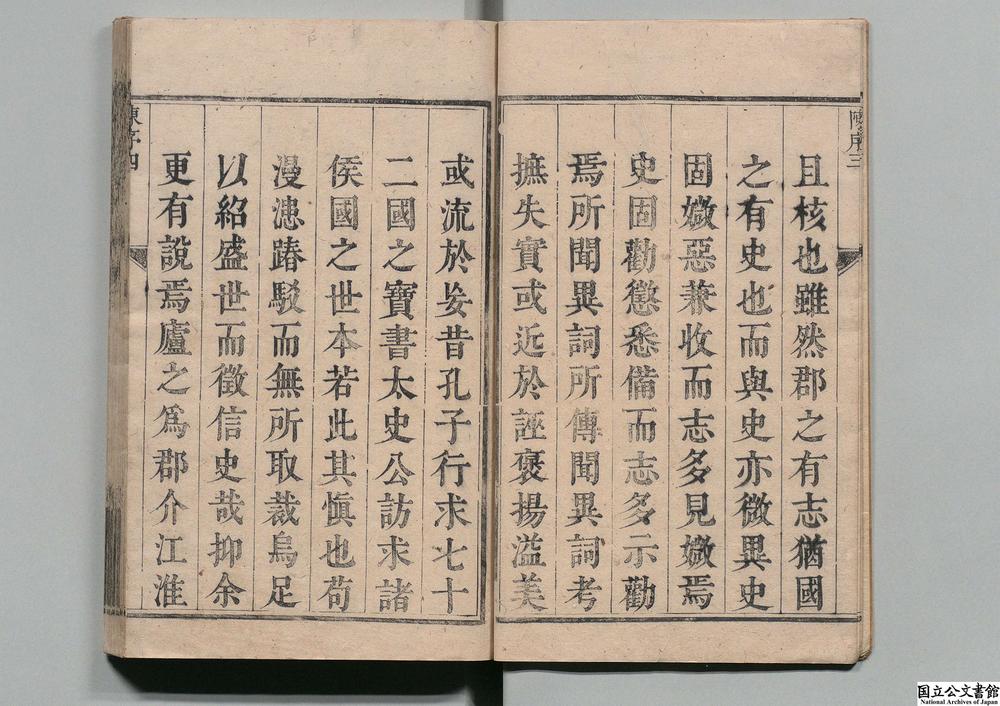 陳序三
且核也雖然郡之有志猶國
之有史也而與史亦微異史
固媺惡兼收而志多見媺焉
史固勸懲悉備而志多示勸
焉所聞異詞所傳聞異詞考
摭失實或近於誣褒揚溢美
或流於妄昔孔子行求七十
二國之寶書太史公訪求諸
侯國之世本若此其愼也苟
漫漶踳駁而無所取裁烏足
以紹盛世而徵信史哉抑余
更有說焉廬之爲郡介江淮
陳序四
国立公文書館
National Archives of Japan